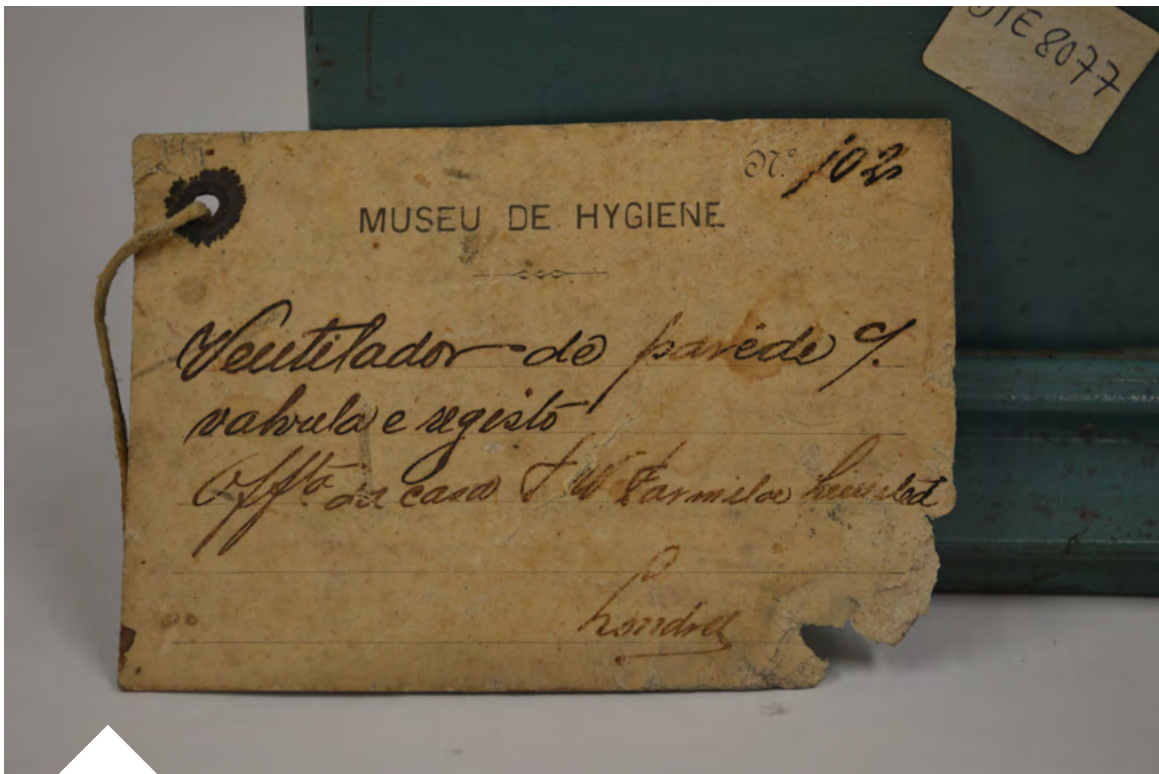 OTE 8077
Nº 102
MUSEU DE HYGIENE
Ventilador de paréde c/.
valvula e registo
Offta da casa F W Farmiloe Limited
Londres